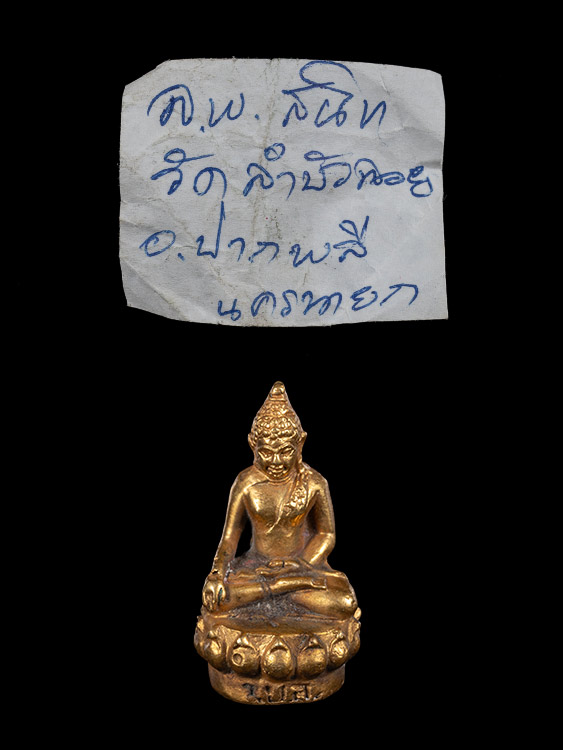 ล.พ. สนิท
วัดลำบัวลอย
อ.ปากพลี
นครนายก